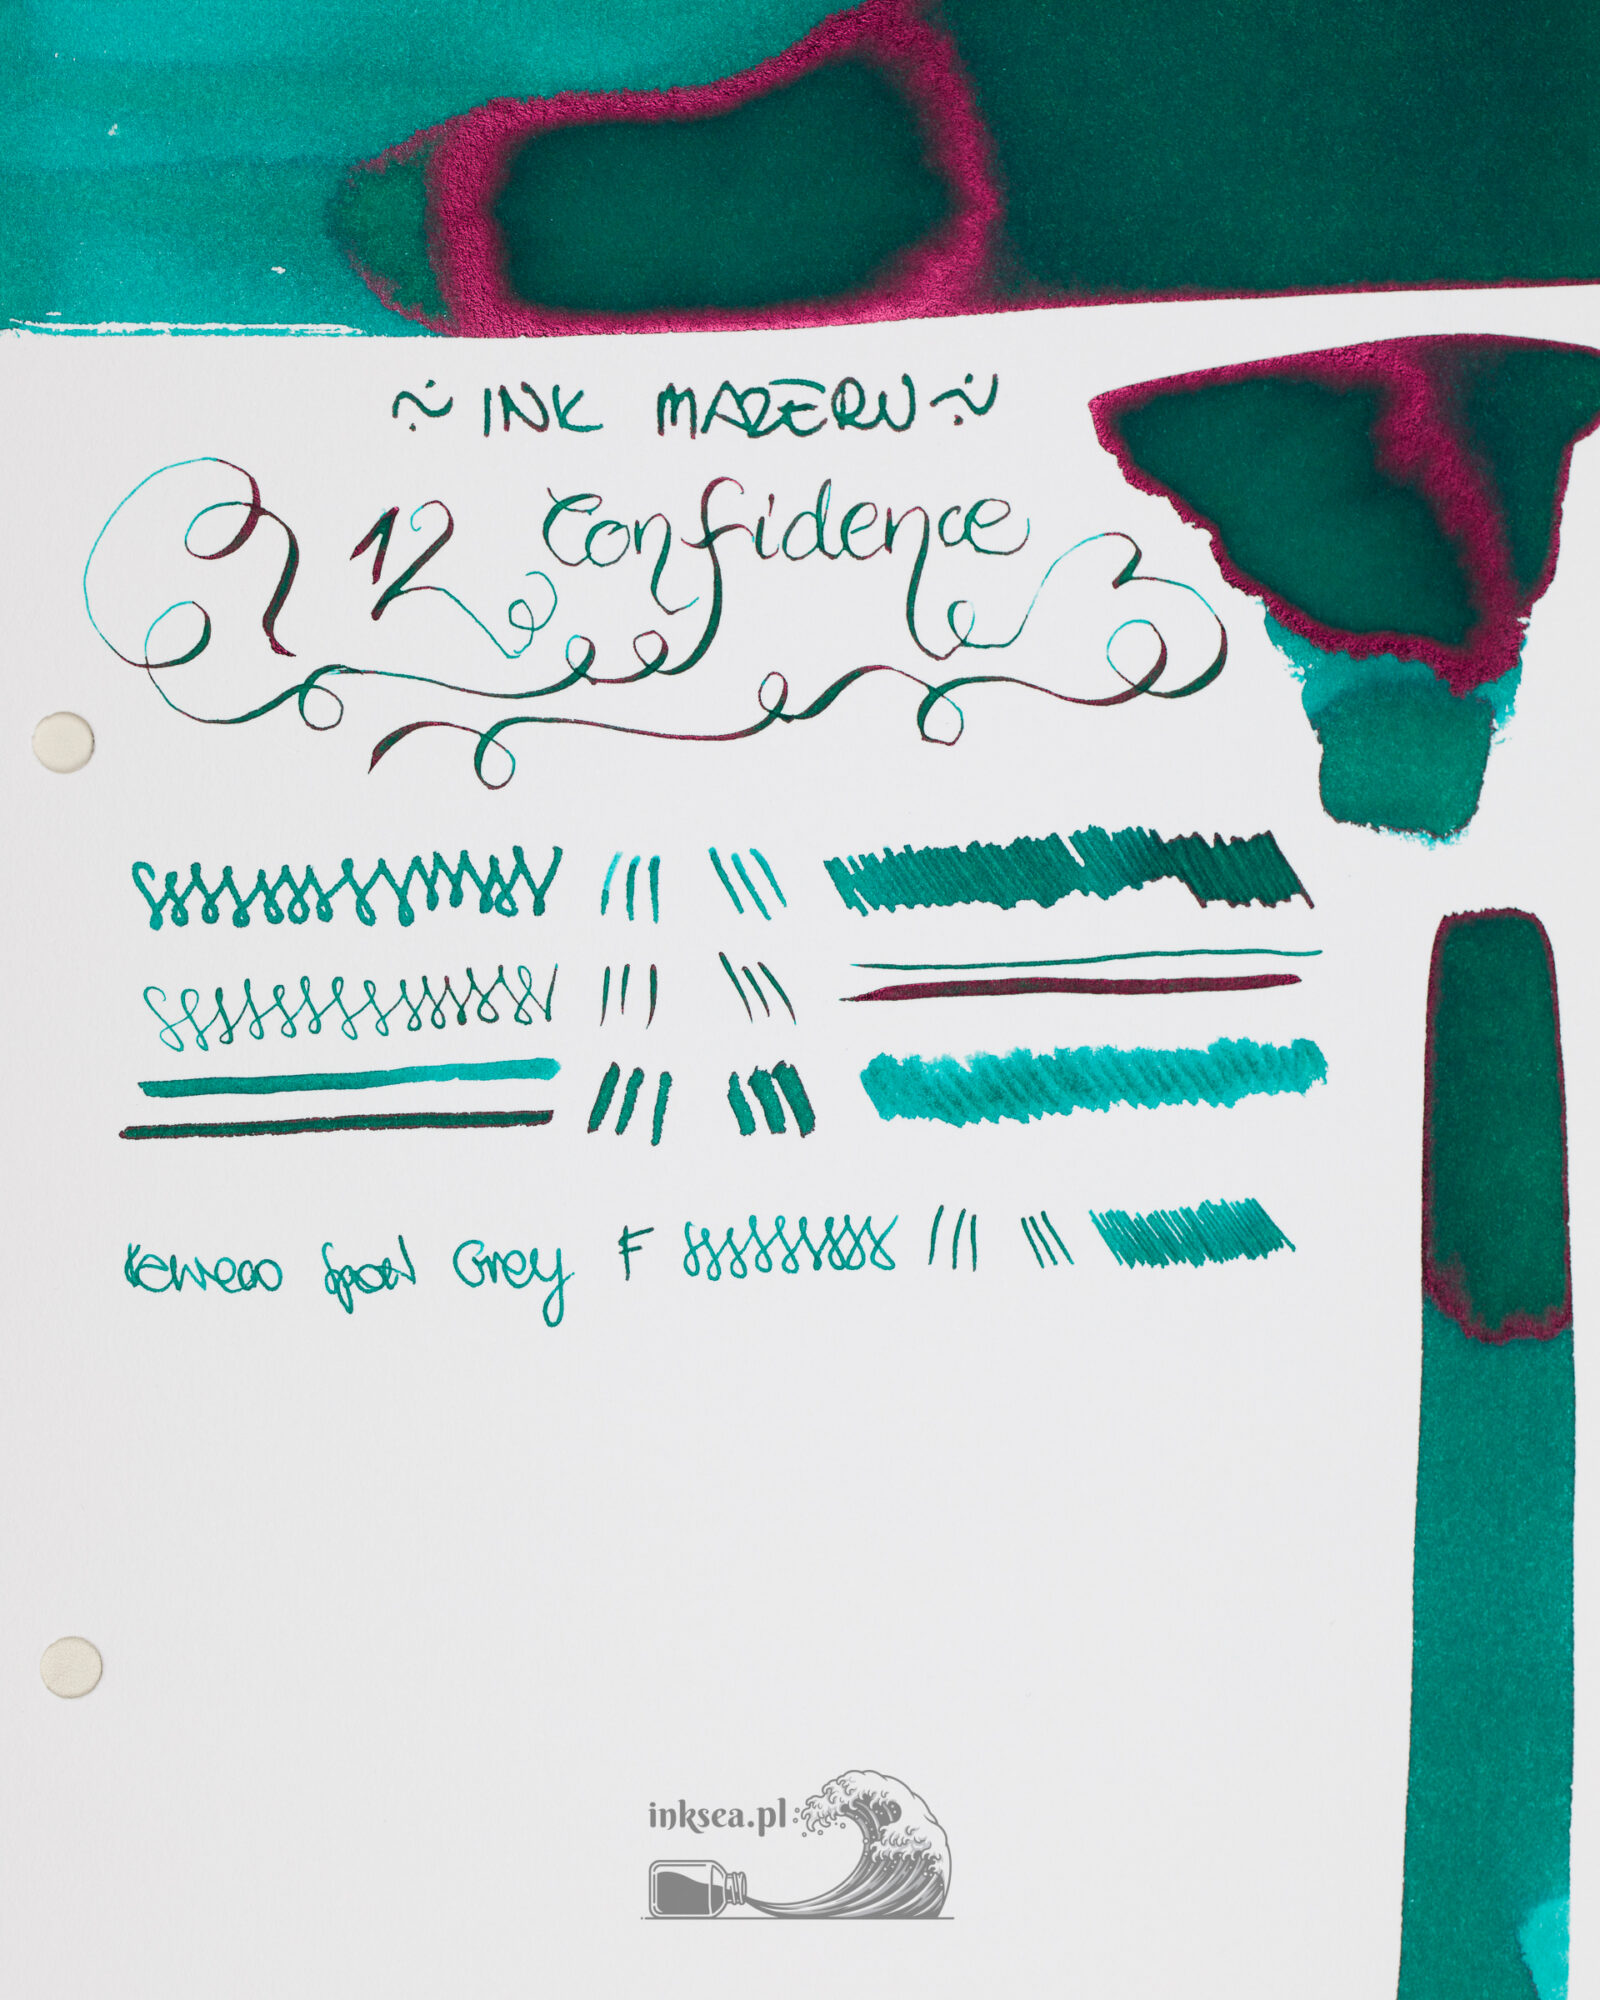 ~ INK MADERN ~
12 Confidence
Kaweco Sport Grey F
inksea.pl